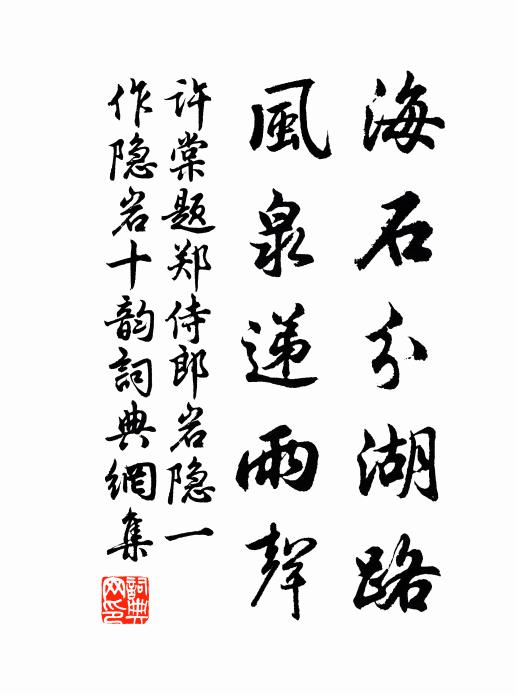 海石分湖路
風泉递雨聲
许棠题郑侍郎岩隐一
作隐岩十韵詞典網集
詞典網印